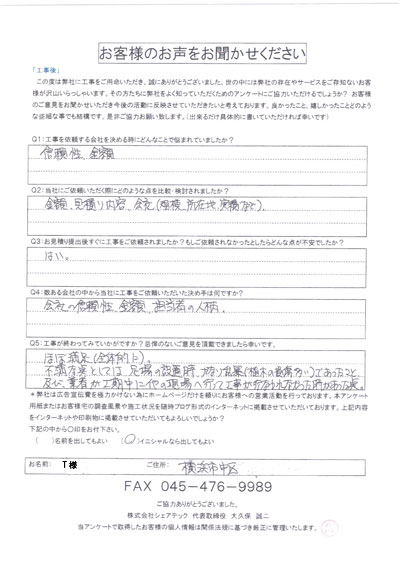 お客様のお声をお聞かせください
「工事後」
この度は弊社に工事をご用命いただき、誠にありがとうございました。世の中には弊社の存在やサービスをご存知ないお客
様が沢山いらっしゃいます。その方たちに弊社をよく知っていただくためのアンケートにご協力いただけるでしょうか? お客様
のご意見をお聞かせいただき今後の活動に反映させていただきたいと考えております。良かったこと、嬉しかったことどのよう
な些細な事でも結構です。是非ご協力お願い致します。(出来るだけ具体的に書いていただければ幸いです)
Q1:工事を依頼する会社を決める時にどんなことで悩まれていましたか?
信頼性、金額
Q2:当社にご依頼いただく際にどのような点を比較・検討されましたか?
金額、見積り内容、会社(規模、所在地、実績など)。
Q3:お見積り提出後すぐに工事をご依頼されましたか?もしご依頼されなかったとしたらどんな点が不安でしたか?
はい。
Q4:数ある会社の中から当社に工事をご依頼いただいた決め手は何ですか?
会社の信頼性、金額、担当者の人柄。
Q5:工事が終わってみていかがですか?忌憚のないご意見を頂戴できましたら幸いです。
ほぼ満足(全体的に)。
不満な点としては、足場の設置時、
及び、業者が工期中に他の現場へ行って工事が行なわれなかった
*弊社は広告宣伝費を極力かけない為にホームページだけを頼りにお客様への営業活動を行っております。本アンケート
用紙またはお客様宅の調査風景や施工状況を随時ブログ形式のインターネットに掲載させていただいております。上記内容
をインターネットや印刷物に掲載させていただいてもよろしいでしょうか?
下記の中から○印をお付下さい。
( )名前を出してもよい (○)イニシャルなら出してもよい
お名前: T様 ご住所: 横浜市中区
FAX 045-476-9989
ご協力ありがとうございました。
株式会社シェアテック 代表取締役 大久保 誠二
当アンケートで取得したお客様の個人情報は関係法規に基づき厳正に管理いたします。